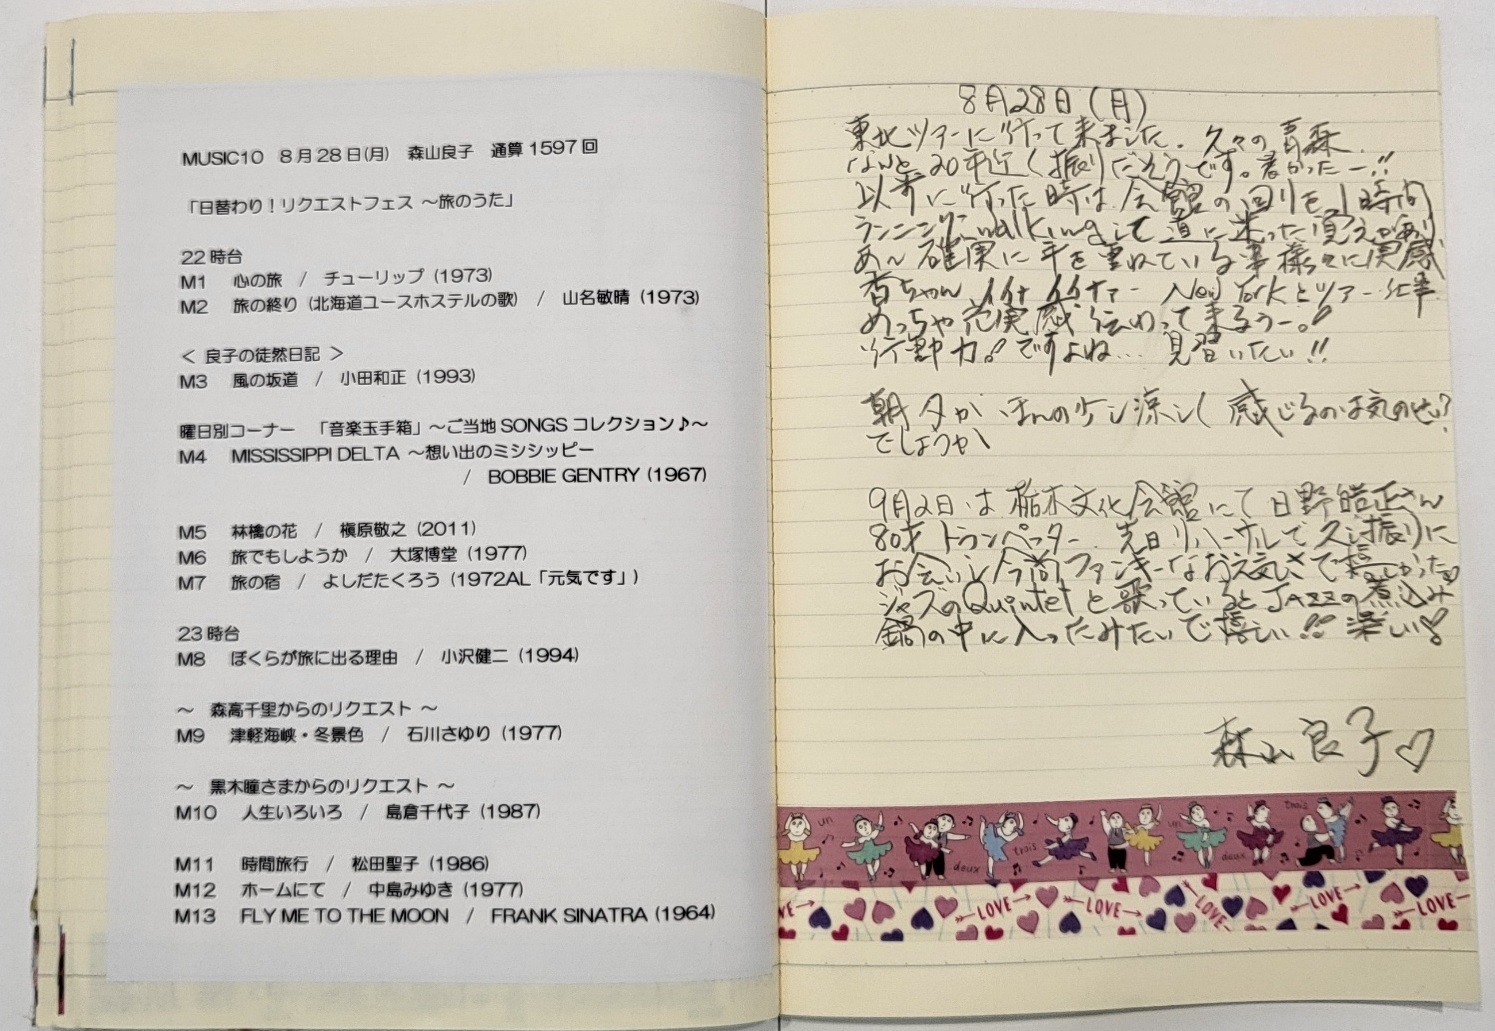 MUSIC10 8月28日(月) 森山良子 通算1597回
「日替わり！リクエストフェス ～旅のうた」
22時台
M1 心の旅 / チューリップ (1973)
M2 旅の終り (北海道ユースホステルの歌) / 山名敏晴 (1973)
＜ 良子の徒然日記 ＞
M3 風の坂道 / 小田和正 (1993)
曜日別コーナー 「音楽玉手箱」～ご当地SONGSコレクション♪～
M4 MISSISSIPPI DELTA ～想い出のミシシッピー
/ BOBBIE GENTRY (1967)
M5 林檎の花 / 槇原敬之 (2011)
M6 旅でもしようか / 大塚博堂 (1977)
M7 旅の宿 / よしだたくろう (1972AL「元気です」)
23時台
M8 ぼくらが旅に出る理由 / 小沢健二 (1994)
～ 森高千里からのリクエスト ～
M9 津軽海峡・冬景色 / 石川さゆり (1977)
～ 黒木瞳さまからのリクエスト ～
M10 人生いろいろ / 島倉千代子 (1987)
M11 時間旅行 / 松田聖子 (1986)
M12 ホームにて / 中島みゆき (1977)
M13 FLY ME TO THE MOON / FRANK SINATRA (1964)
8月28日(月)
東北ツアーに行って来ました. 久々の青森
なんと20年近く振りだそうです。暑かったー!!
以前に行った時は会館の回りを1時間
ランニングWalkingして道に迷った覚えがあり
あ～確実に年を重ねている事様々に実感
香ちゃん New Yorkとツアー 仕事
めっちゃ充実感伝わって来るうー。!
行動力! ですよね... 見習いたい!!
朝夕がほんの少し涼しく感じるのは気のせい?
でしょうか
9月2日は栃木文化会館にて日野皓正さん
80才トランペッター. 先日リハーサルで久し振りに
お会いし今尚ファンキーなお元気さで嬉しかった♡
ジャズのQuintetと歌っているとJAZZの煮込み
鍋の中に入ったみたいで嬉しい!! 楽しい♡
森山良子♡
un trois trois
deux un deux
LOVE LOVE LOVE LOVE LOVE